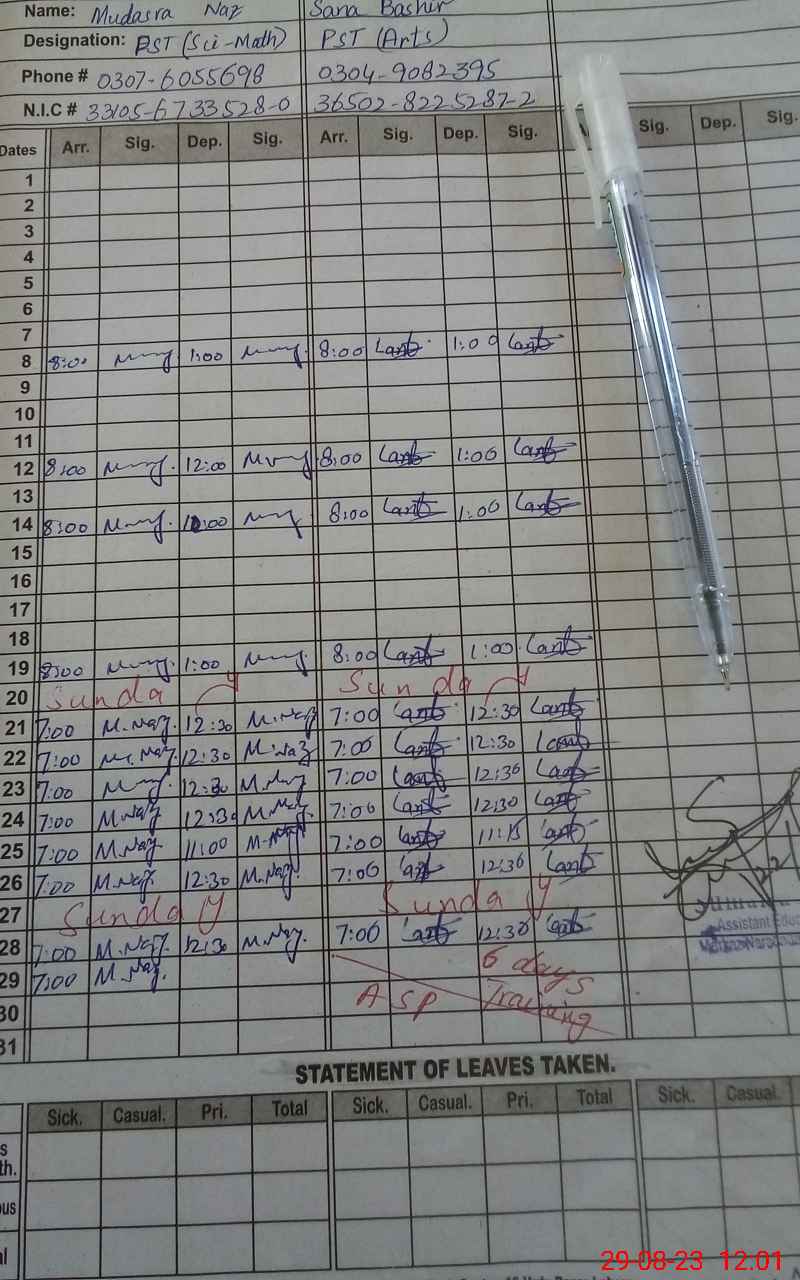 Name: Mudasra Naz Sana Bashir
Designation: PST (Sci-Math) PST (Arts)
Phone # 0307-6055698 0304-9082395
N.I.C # 33105-6733528-0 36502-8225287-2
Dates Arr. Sig. Dep. Sig. Arr. Sig. Dep. Sig. Sig. Dep. Sig.
1
2
3
4
5
6
7
8 8:00 1:00 8:00 1:00
9
10
11
12 8:00 12:00 8:00 1:00
13
14 8:00 8:00 1:00
15
16
17
18
19 8:00 1:00 8:00 1:00
20 Sunda y Sunda y
21 7:00 M.Naz 12:30 M.Naz 7:00 12:30
22 7:00 M.Naz 12:30 M.Naz 7:00 12:30
23 7:00 12:30 M.Naz 7:00 12:30
24 7:00 M.Naz 12:30 M.Naz 7:00 12:30
25 7:00 M.Naz 11:00 M.Naz 7:00 11:15
26 7:00 M.Naz 12:30 M.Naz 7:00 12:30
27 Sunday Sunday
28 7:00 M.Naz 12:30 M.Naz 7:00 12:30
29 7:00 M.Naz 6 days
30 ASP Training
31
Assistant Educ
STATEMENT OF LEAVES TAKEN.
Sick. Casual. Pri. Total Sick. Casual. Pri. Total Sick. Casual.
s
th.
ous
al
29-08-23 12.01